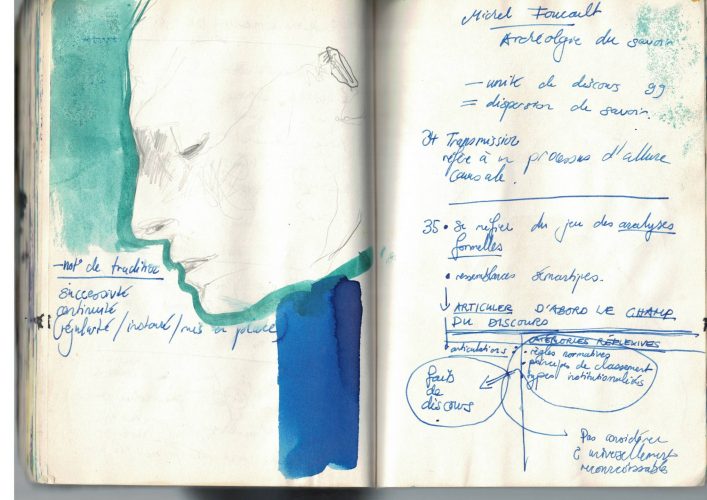 - not° de tradition
successivité
continuité
régularité / instant / mis en place
Michel Foucault
Archéologie du savoir
- unité de discours 99
= dispersion de savoir.
34 Transmission
réfère à un processus d'allure
causale.
35 • Se méfier du jeu des analyses
formelles
• ressemblances sémantiques.
ARTICULER D'ABORD LE CHAMP
DU DISCOURS
CATÉGORIES RÉFLEXIVES
• articulations • règles normatives
• principes de classement
• types institutionnalisés
faits
de
discours
Pas considérer
universellement
reconnaissables